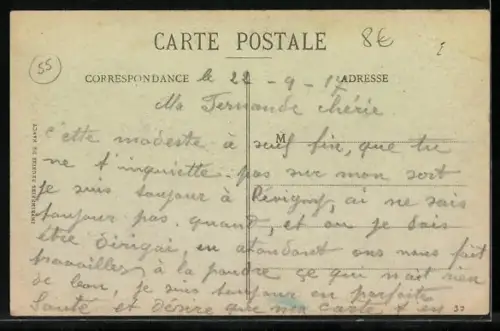 8€
55
CARTE POSTALE
CORRESPONDANCE le 22-9-17 ADRESSE
Ma Fernande chérie
M
Cette modeste à seul fin, que tu
ne t'inquiette pas sur mon sort
je suis toujour à Révigny, ai ne sais
toujour pas quand, et ou je dois
être dirigai, en atandant ons nous fait
travailler à la poudre çe qui nait rien
de bon, je suis toujour en parfaite
Santé et désire que ma carte t en
IMPRIMERIES REUNIES DE NANCY
37